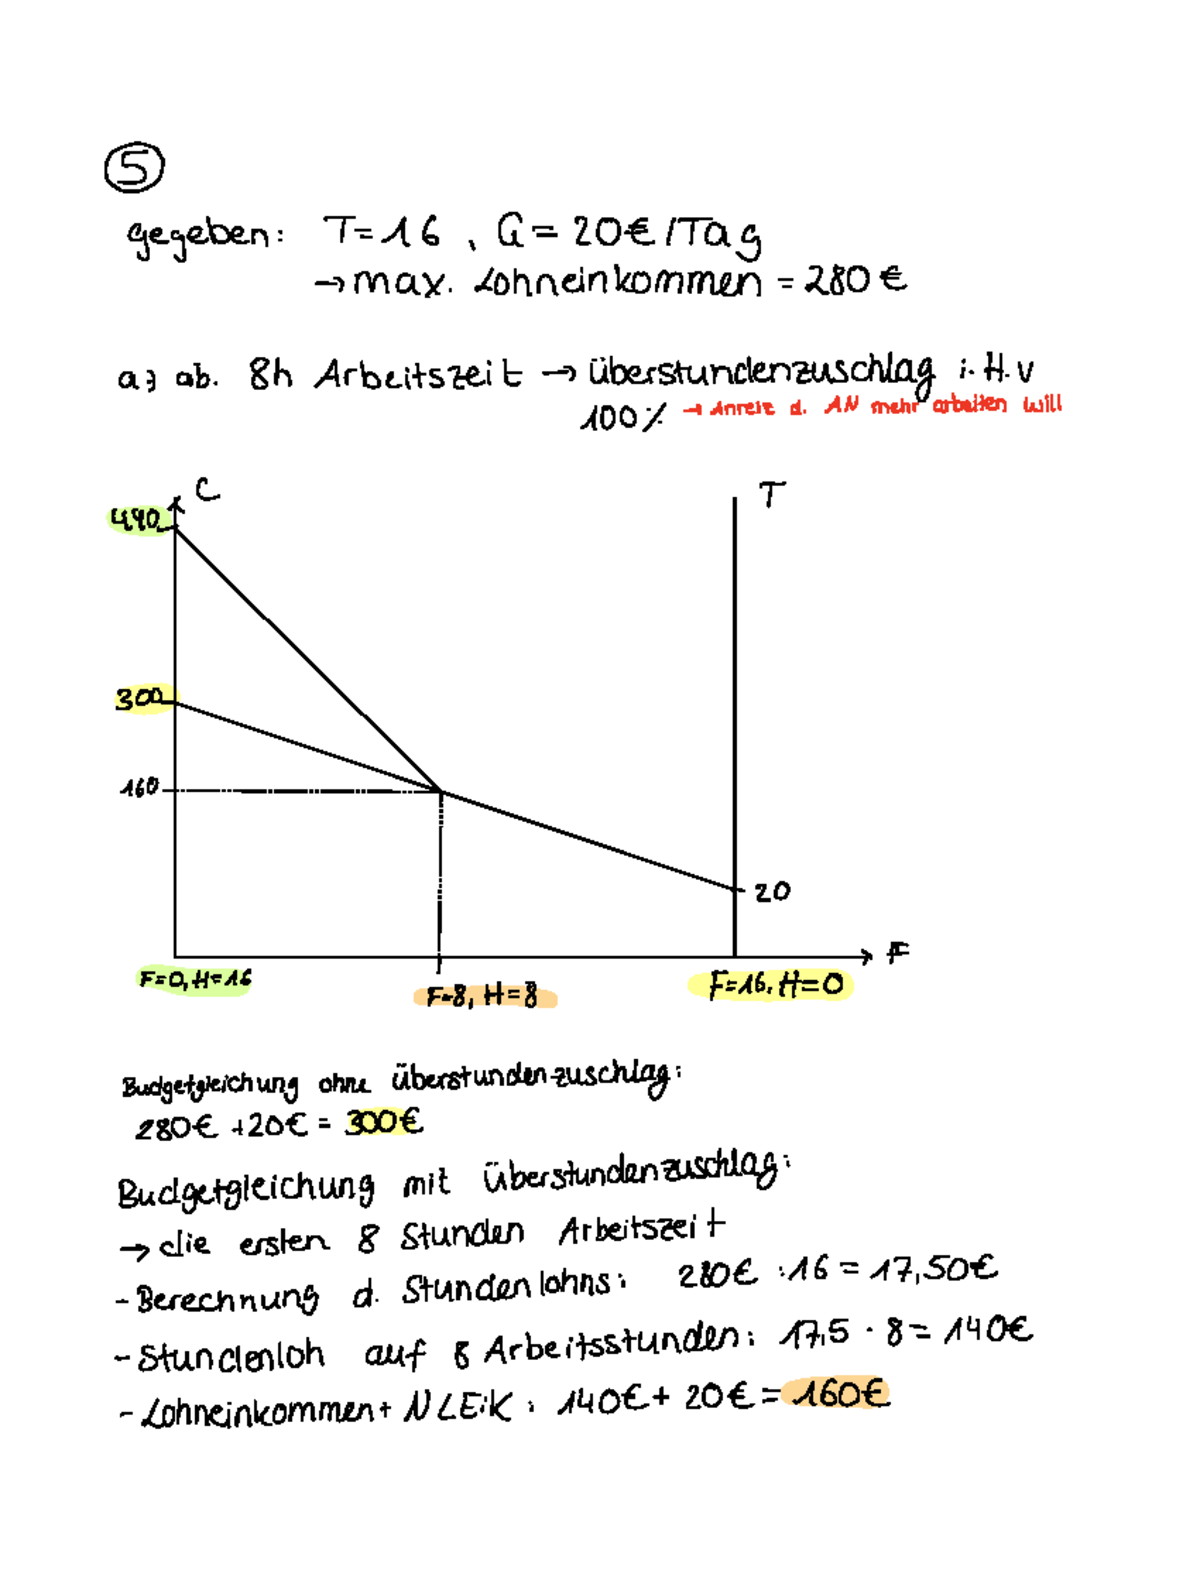 5
gegeben: T=16, G=20€/Tag
→ max. Lohneinkommen = 280€
a) ab. 8h Arbeitszeit → Überstundenzuschlag i.H.v
100% → Anreiz d. AN mehr arbeiten will
C
T
440
300
160
20
F
F=0, H=16
F=8, H=8
F=16, H=0
Budgetgleichung ohne Überstundenzuschlag:
280€ +20€ = 300€
Budgetgleichung mit Überstundenzuschlag:
→ die ersten 8 Stunden Arbeitszeit
- Berechnung d. Stundenlohns: 280€ :16 = 17,50€
- Stundenloh auf 8 Arbeitsstunden: 17,5 · 8 = 140€
- Lohneinkommen + NLEiK: 140€ + 20€ = 160€